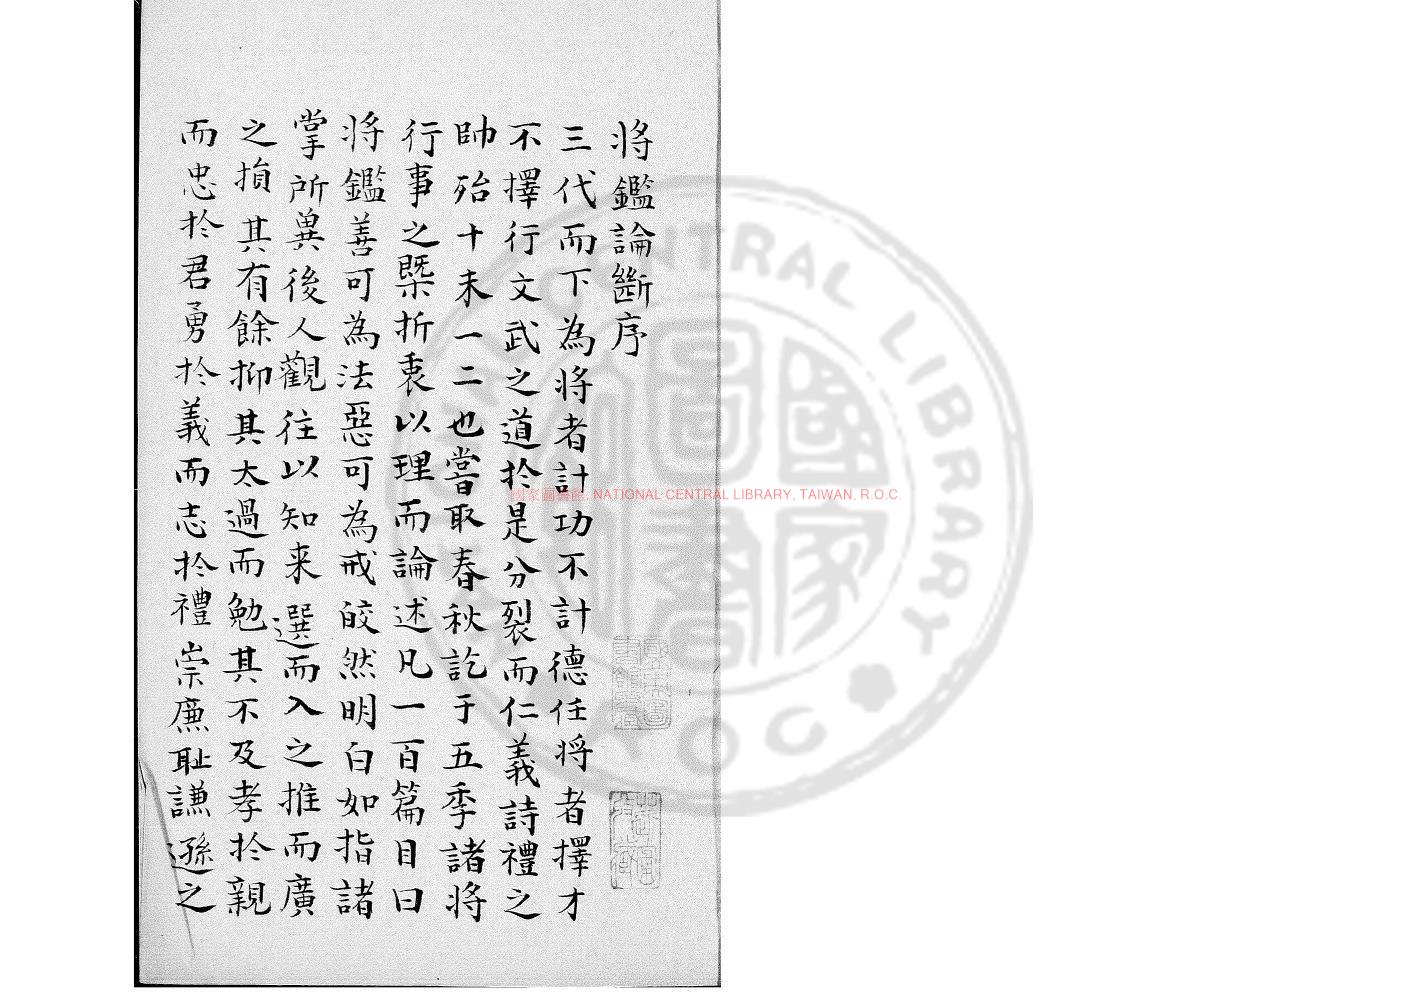 將鑑論斷序
三代而下為將者計功不計德任將者擇才
不擇行文武之道扵是分裂而仁義詩禮之
帥殆十未一二也嘗取春秋訖于五季諸將
行事之槩折衷以理而論述凡一百篇目曰
將鑑善可為法惡可為戒皎然明白如指諸
掌所兾後人觀往以知来選而入之推而廣
之損其有餘抑其太過而勉其不及孝扵親
而忠扵君勇扵義而志扵禮崇廉耻謙遜之
國家圖書館, NATIONAL CENTRAL LIBRARY, TAIWAN, R.O.C.
國家圖書
NATIONAL CENTRAL LIBRARY